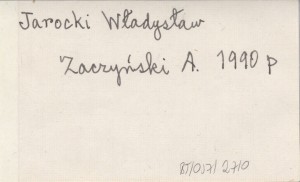 Jarocki Władysław
Zaczyński A. 1990 p
BT/057/2710